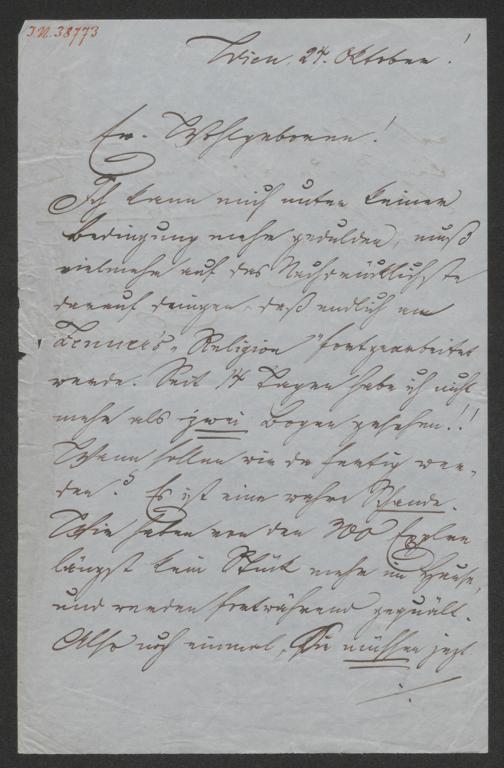 I.N. 38773
Wien, 24. Oktober!
Ew. Wohlgeboren!
Ich kann mich unter keiner
Bedingung mehr gedulden, muß
vielmehr auf das Nachdrücklichste
darauf dringen, daß endlich an
"Religion" fortgearbeitet
werde. Seit 14 Tagen habe ich nicht
mehr als zwei Bogen gesehen!!
Wann sollen wir da fertig wer-
den? Es ist eine wahre Schande.
Wir haben von den 300 Explrn
längst kein Stück mehr im Hause,
und werden fortwährend gequält.
Also noch einmal, Sie müssen jezt
./.